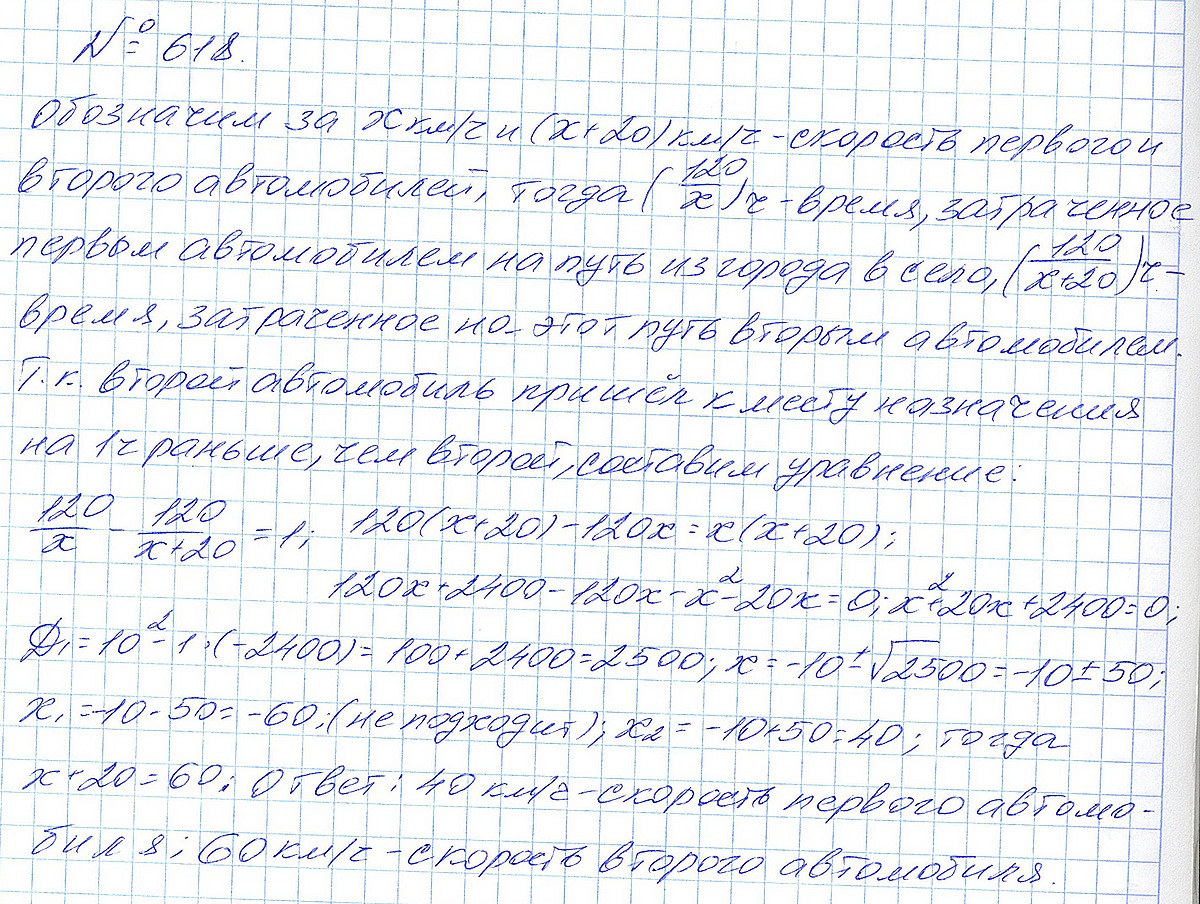 № 618.
Обозначим за x км/ч и (x+20) км/ч - скорость первого и
второго автомобилей, тогда (120/x) ч - время, затраченное
первым автомобилем на путь из города в село, (120/(x+20)) ч -
время, затраченное на этот путь вторым автомобилем.
Т.к. второй автомобиль пришёл к месту назначения
на 1ч раньше, чем второй, составим уравнение:
120/x - 120/(x+20) = 1; 120(x+20) - 120x = x(x+20);
120x + 2400 - 120x - x² - 20x = 0; x² + 20x + 2400 = 0;
Д₁ = 10² - 1·(-2400) = 100 + 2400 = 2500; x = -10 ± √2500 = -10 ± 50;
x₁ = -10 - 50 = -60; (не подходит); x₂ = -10 + 50 = 40; тогда
x + 20 = 60; Ответ: 40 км/ч - скорость первого автомо-
биля; 60 км/ч - скорость второго автомобиля.